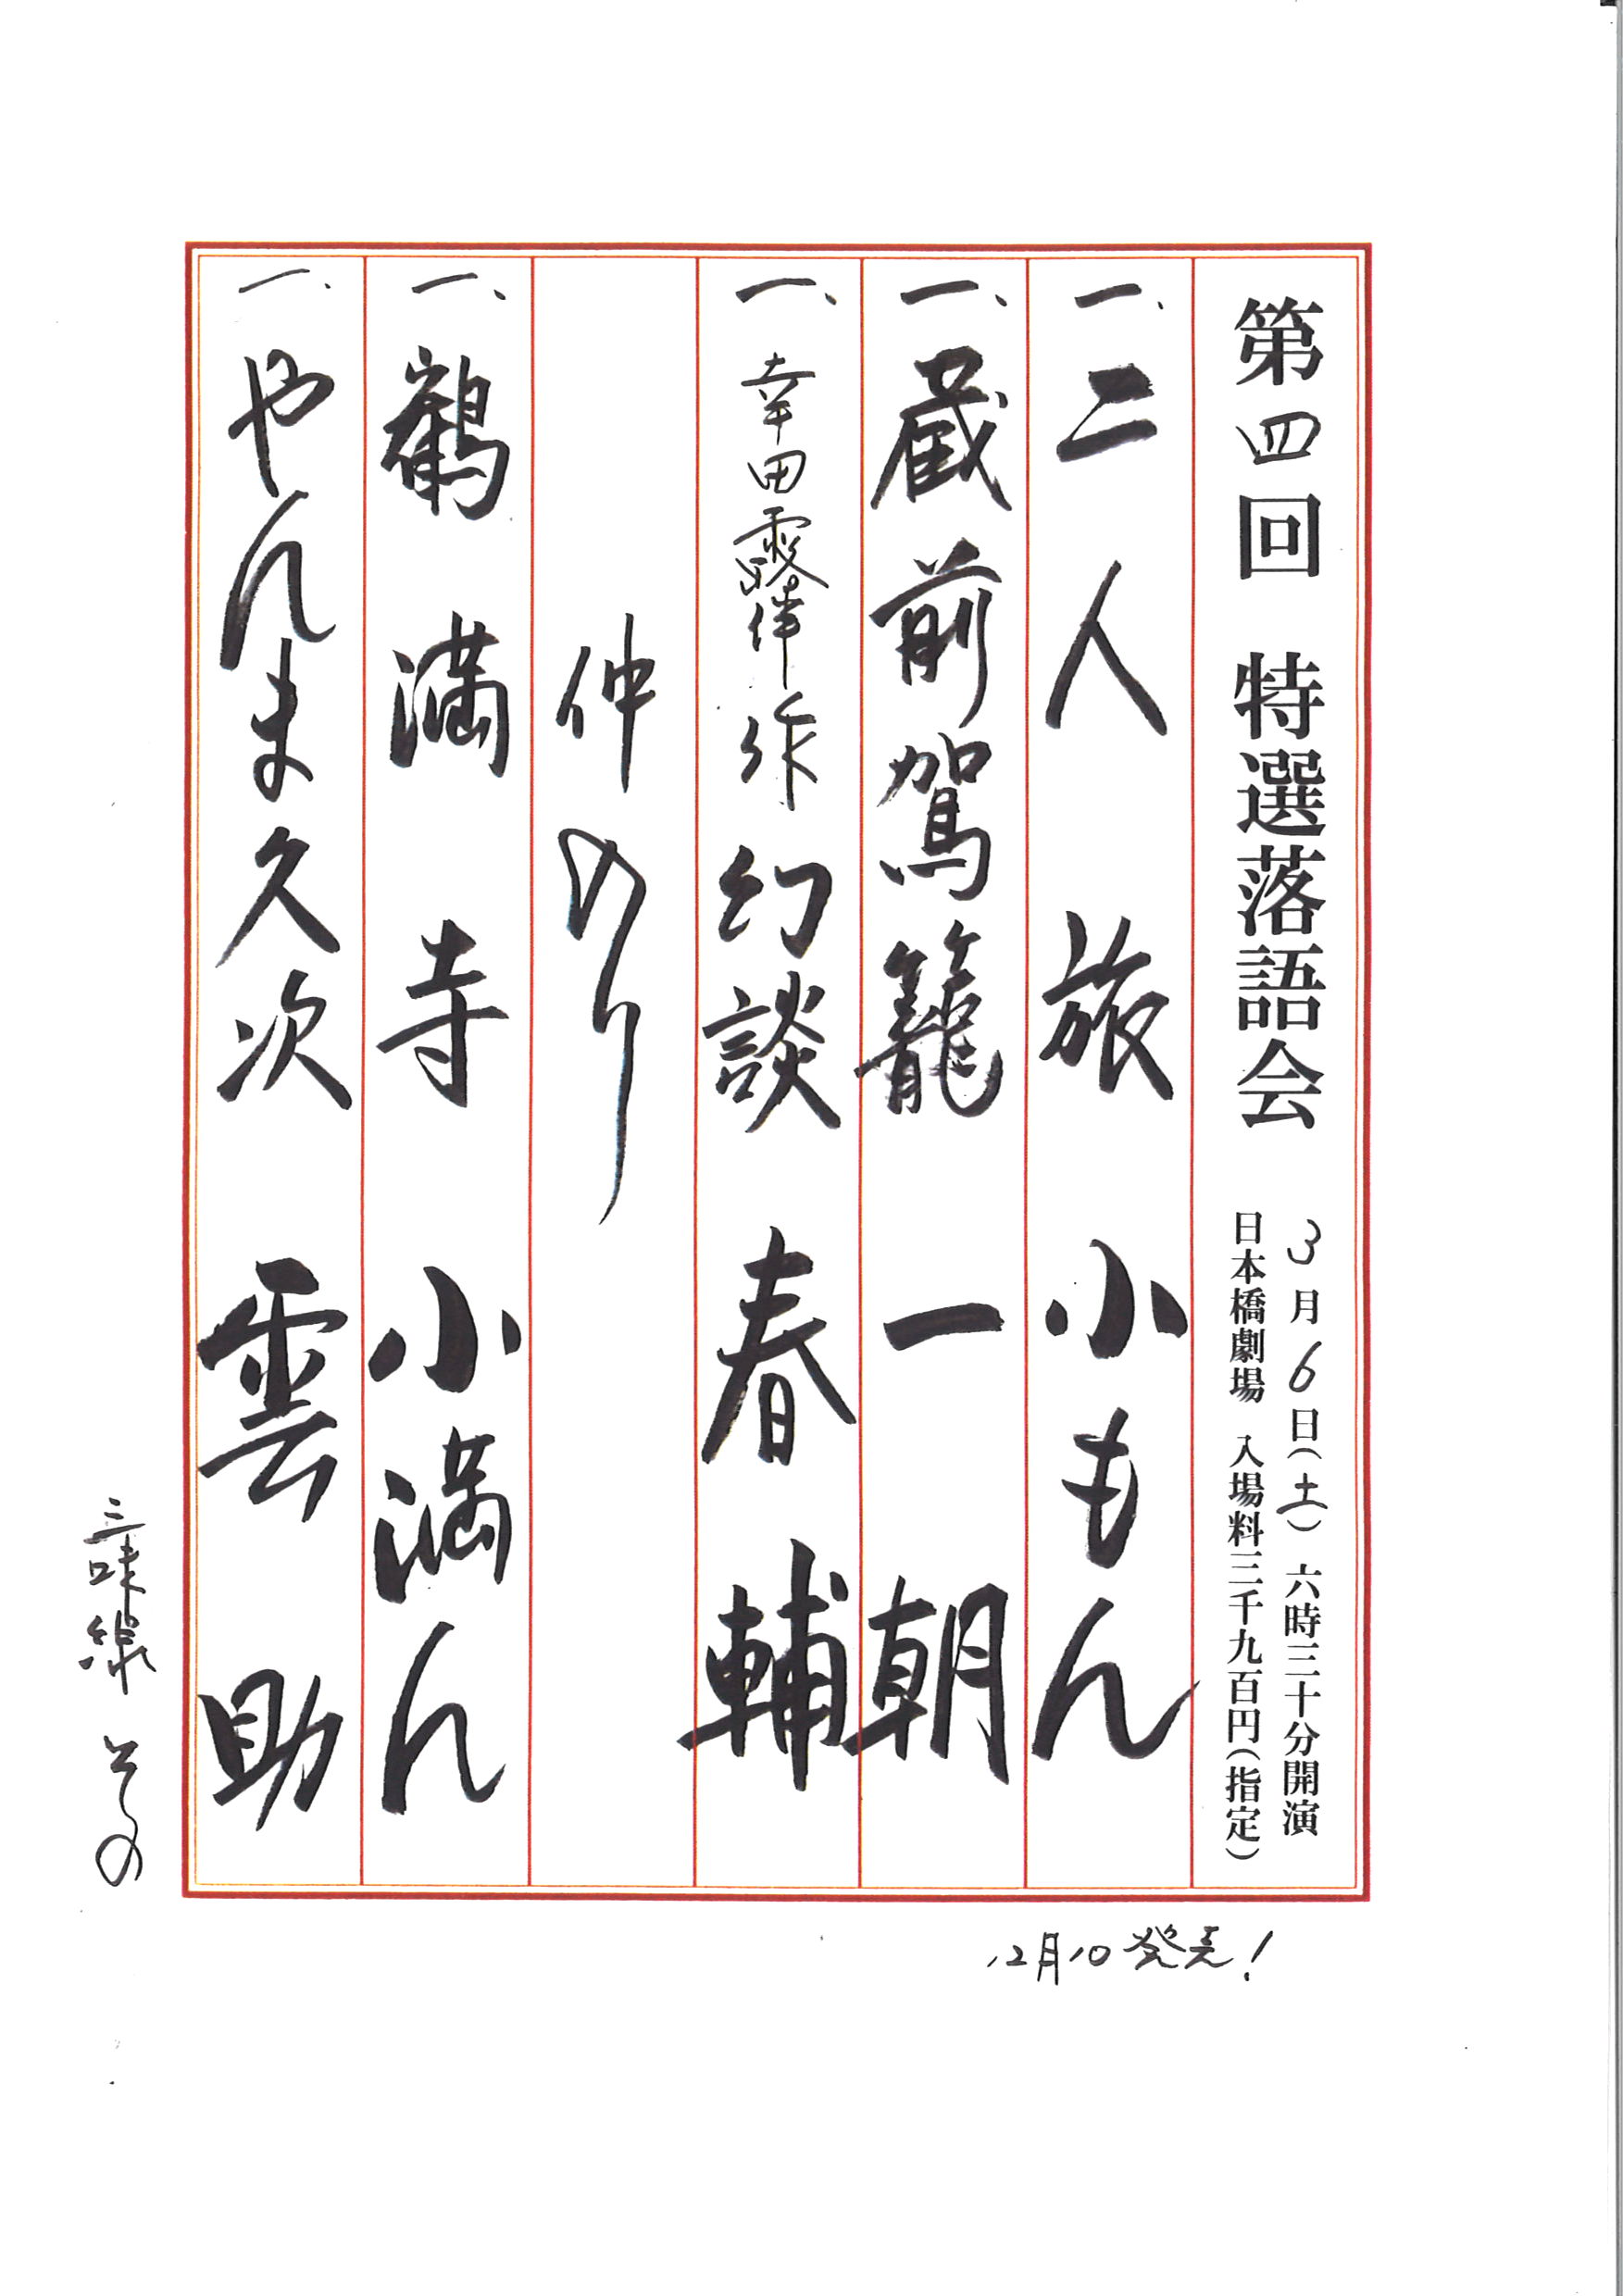 第四回 特選落語会
3月6日(土) 六時三十分開演
日本橋劇場 入場料三千九百円(指定)
一、二人旅 小もん
一、蔵前駕籠 一朝
一、幸田露伴作 幻談 春輔
仲入り
一、鶴満寺 小満ん
一、やんま久次 雲助
三味線 その
12月10発売!